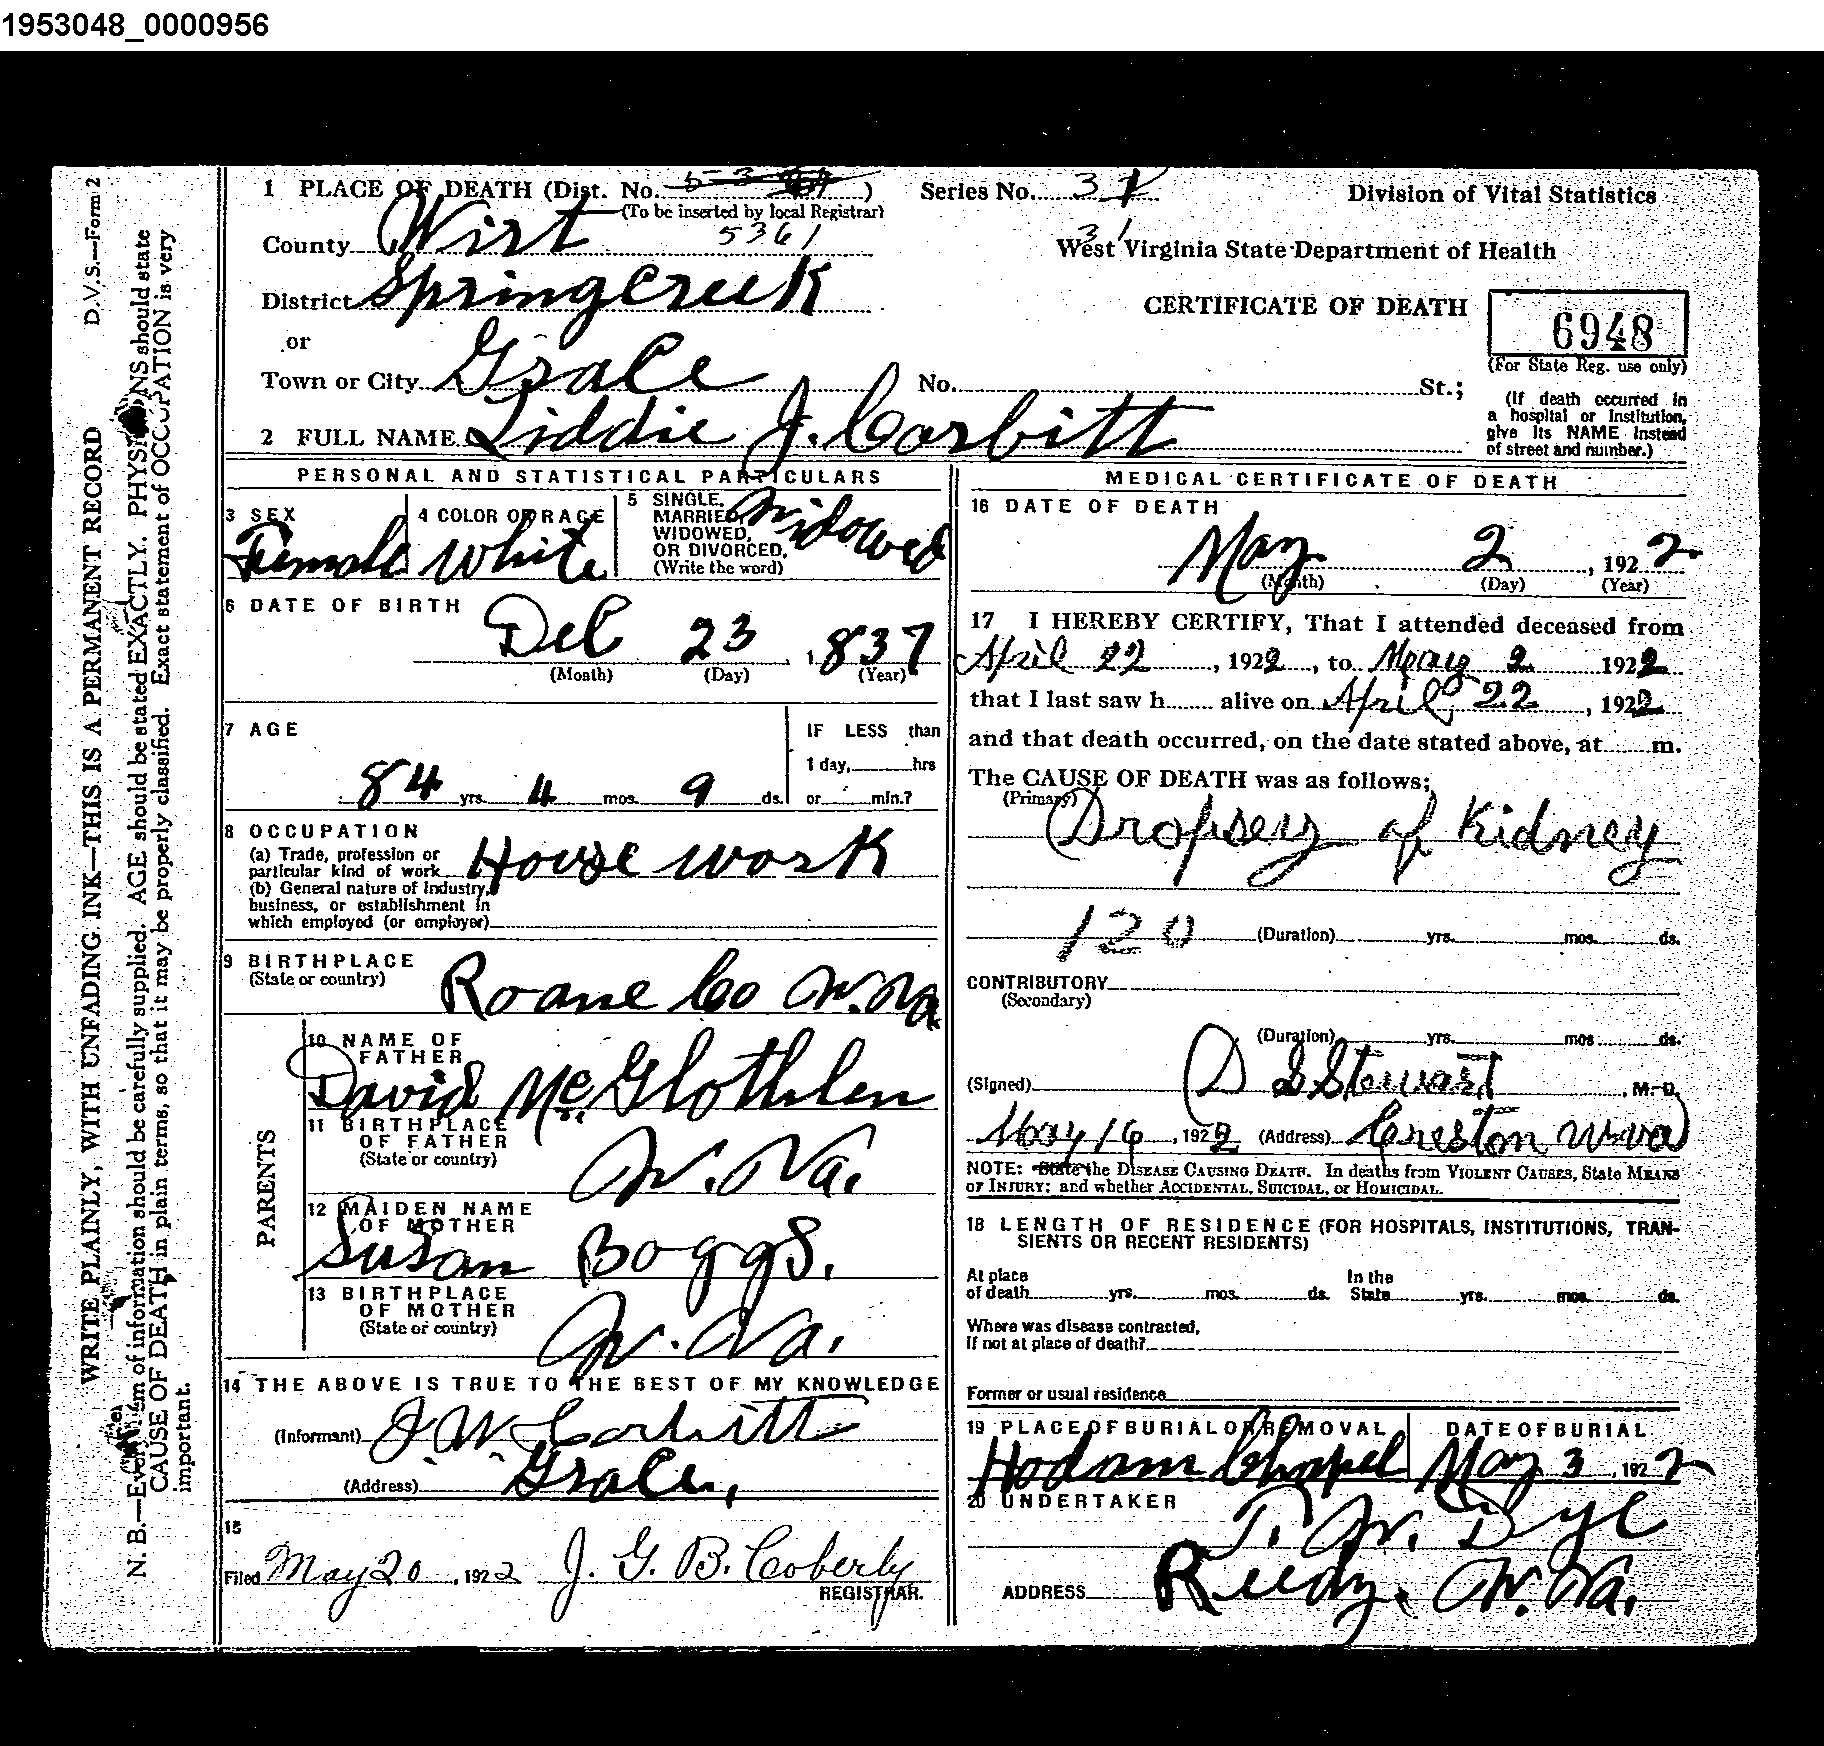 1953048_0000956
D.V.S.—Form 2
WRITE PLAINLY, WITH UNFADING INK—THIS IS A PERMANENT RECORD
N. B.—Every item of information should be carefully supplied. AGE should be stated EXACTLY. PHYSICIANS should state
CAUSE OF DEATH in plain terms, so that it may be properly classified. Exact statement of OCCUPATION is very
important.
1 PLACE OF DEATH (Dist. No. 53 ) Series No. 31 Division of Vital Statistics
(To be inserted by local Registrar)
County Wirt 5361 31 West Virginia State Department of Health
District Springcreek CERTIFICATE OF DEATH 6948
or (For State Reg. use only)
Town or City Grace No. St.;
(If death occurred in
a hospital or institution,
give its NAME instead
of street and number.)
2 FULL NAME Liddie J. Corbitt
PERSONAL AND STATISTICAL PARTICULARS
3 SEX
Female
4 COLOR OR RACE
White
5 SINGLE,
MARRIED,
WIDOWED,
OR DIVORCED,
(Write the word)
Widowed
6 DATE OF BIRTH
Dec 23, 1837
(Month) (Day) (Year)
7 AGE
84 yrs. 4 mos. 9 ds.
IF LESS than
1 day, hrs
or min.?
8 OCCUPATION
(a) Trade, profession or
particular kind of work House work
(b) General nature of Industry,
business, or establishment in
which employed (or employer)
9 BIRTHPLACE
(State or country) Roane Co W.Va
PARENTS
10 NAME OF
FATHER
David McGlothlen
11 BIRTHPLACE
OF FATHER
(State or country) W. Va.
12 MAIDEN NAME
OF MOTHER
Susan Boggs.
13 BIRTHPLACE
OF MOTHER
(State or country) W. Va.
14 THE ABOVE IS TRUE TO THE BEST OF MY KNOWLEDGE
(Informant) J W Corbitt
(Address) Grace,
15
Filed May 20, 1922 J. G. B. Coberly
REGISTRAR.
MEDICAL CERTIFICATE OF DEATH
16 DATE OF DEATH
May 2, 1922
(Month) (Day) (Year)
17 I HEREBY CERTIFY, That I attended deceased from
April 22, 1922, to May 2 1922
that I last saw h alive on April 22, 1922
and that death occurred, on the date stated above, at m.
The CAUSE OF DEATH was as follows:
(Primary)
Dropsey of Kidney
120 (Duration) yrs. mos. ds.
CONTRIBUTORY
(Secondary)
(Duration) yrs. mos. ds.
(Signed) D S Stewart, M.D.
May 16, 1922 (Address) Creston W.Va
NOTE: State the DISEASE CAUSING DEATH. In deaths from VIOLENT CAUSES, State MEANS
OF INJURY; and whether ACCIDENTAL, SUICIDAL, or HOMICIDAL.
18 LENGTH OF RESIDENCE (FOR HOSPITALS, INSTITUTIONS, TRAN-
SIENTS OR RECENT RESIDENTS)
At place In the
of death yrs. mos. ds. State yrs. mos. ds.
Where was disease contracted,
If not at place of death?
Former or usual residence
19 PLACE OF BURIAL OR REMOVAL
Hodam Chapel
DATE OF BURIAL
May 3, 1922
20 UNDERTAKER
T. W. Dye
ADDRESS Reedy, W. Va.